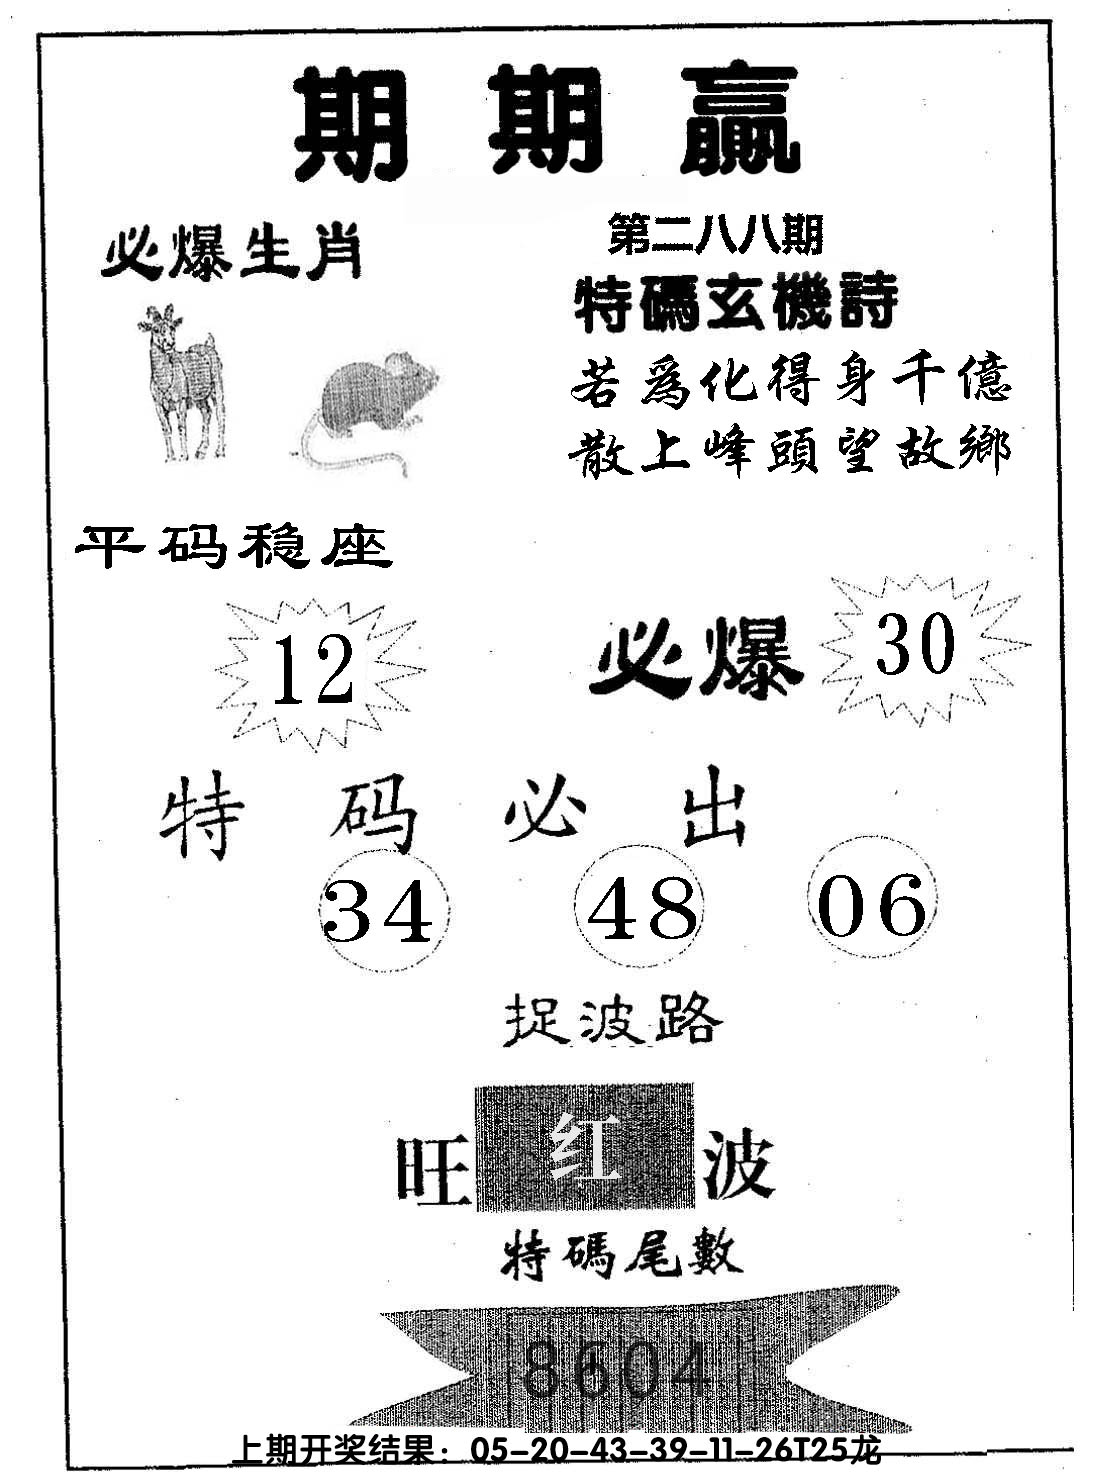 期期赢
必爆生肖
第二八八期
特碼玄機詩
若爲化得身千億
散上峰頭望故鄉
平码稳座
12
必爆 30
特码必出
34 48 06
捉波路
旺红波
特碼尾數
8604
上期开奖结果：05-20-43-39-11-26T25龙